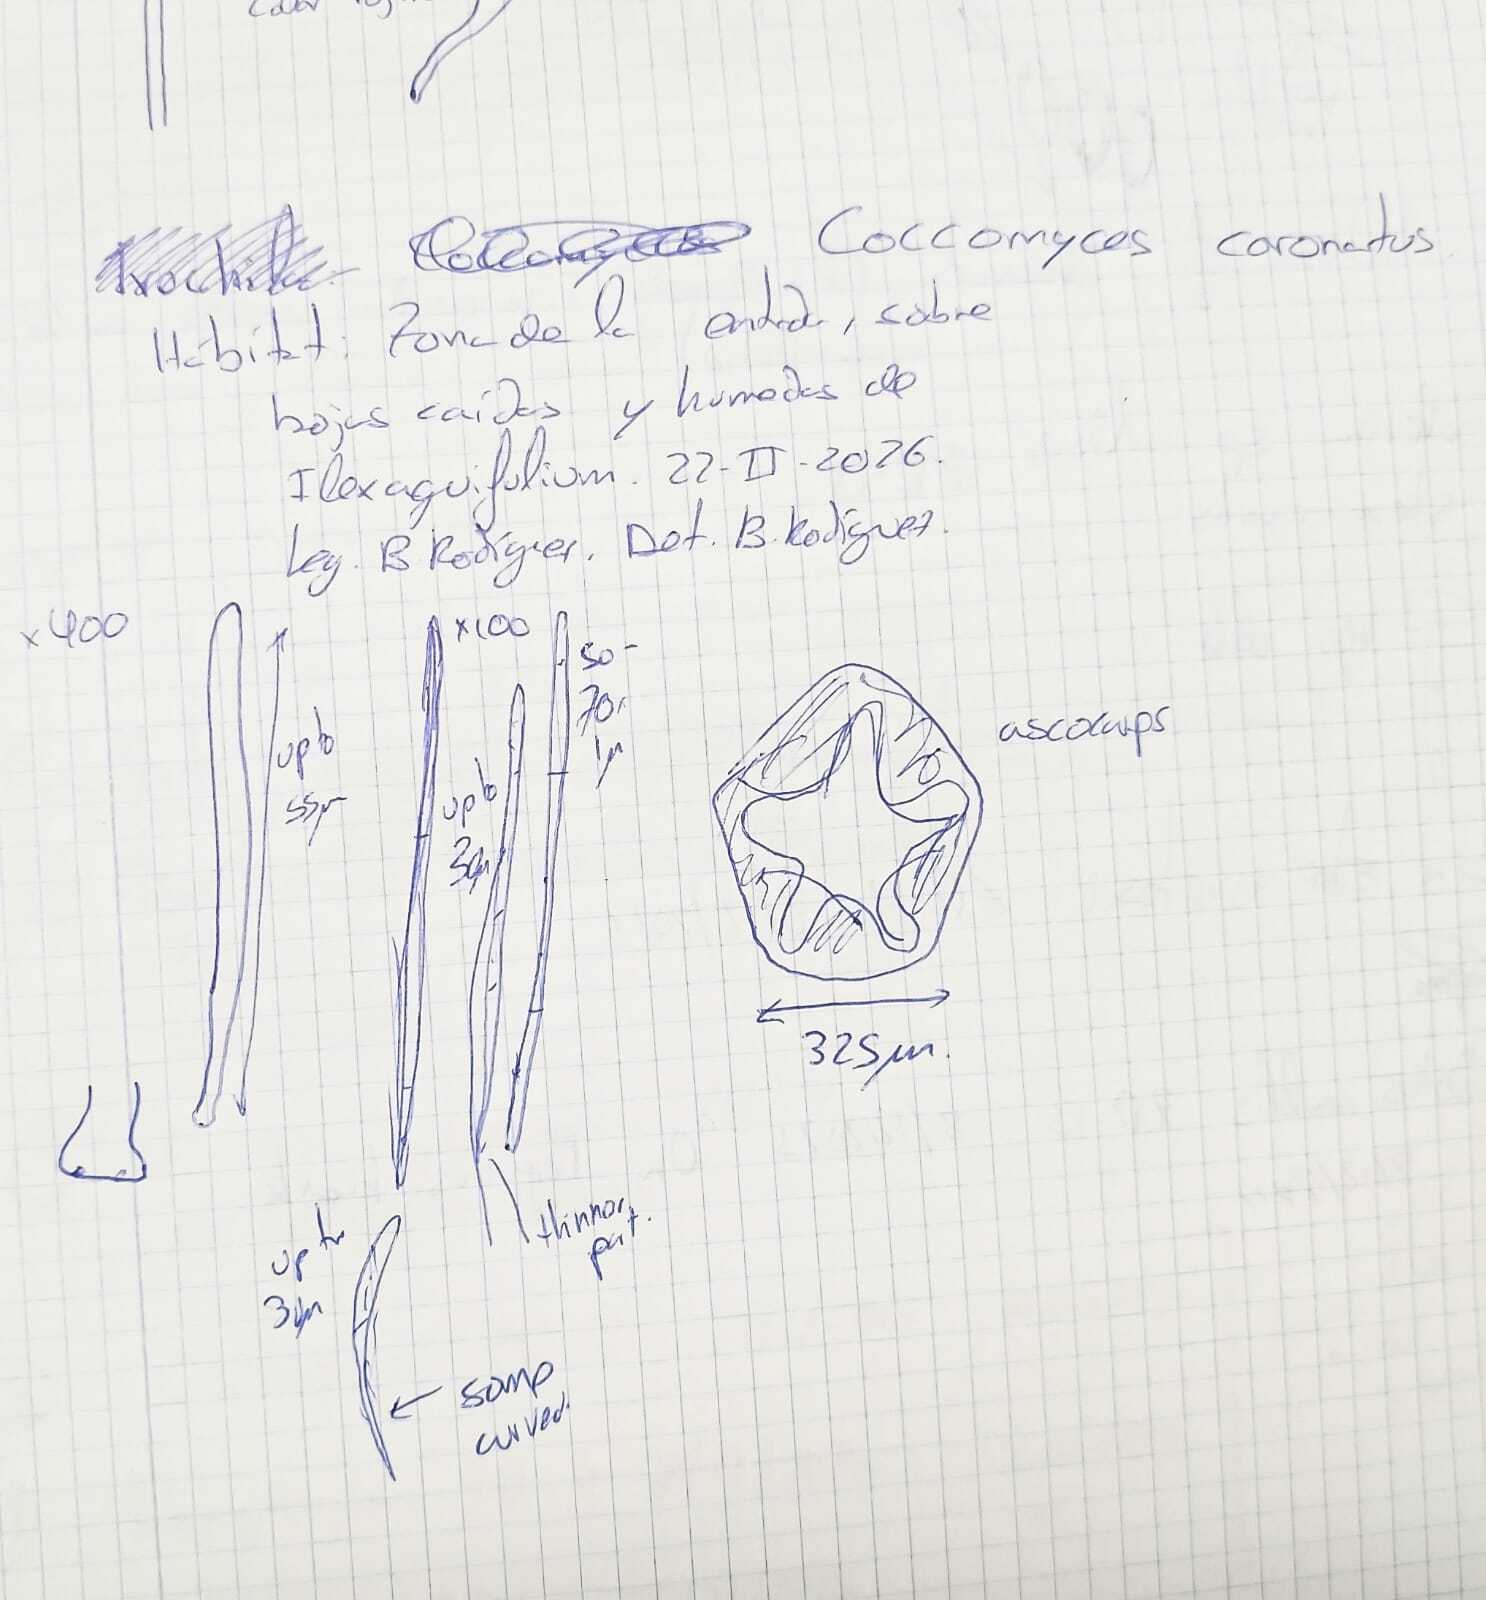 color
Coccomyces coronatus
Hábitat: Zona de la entrada, sobre
hojas caídas y humedas de
Ilex aquifolium. 22-II-2026.
Leg. B Rodríguez. Det. B. Rodríguez.
x400
x100
up to
55µ
up to
30µ
50-
70.
1µ
ascocarps
325µm.
thinner
part.
up to
3µm
some
curved.